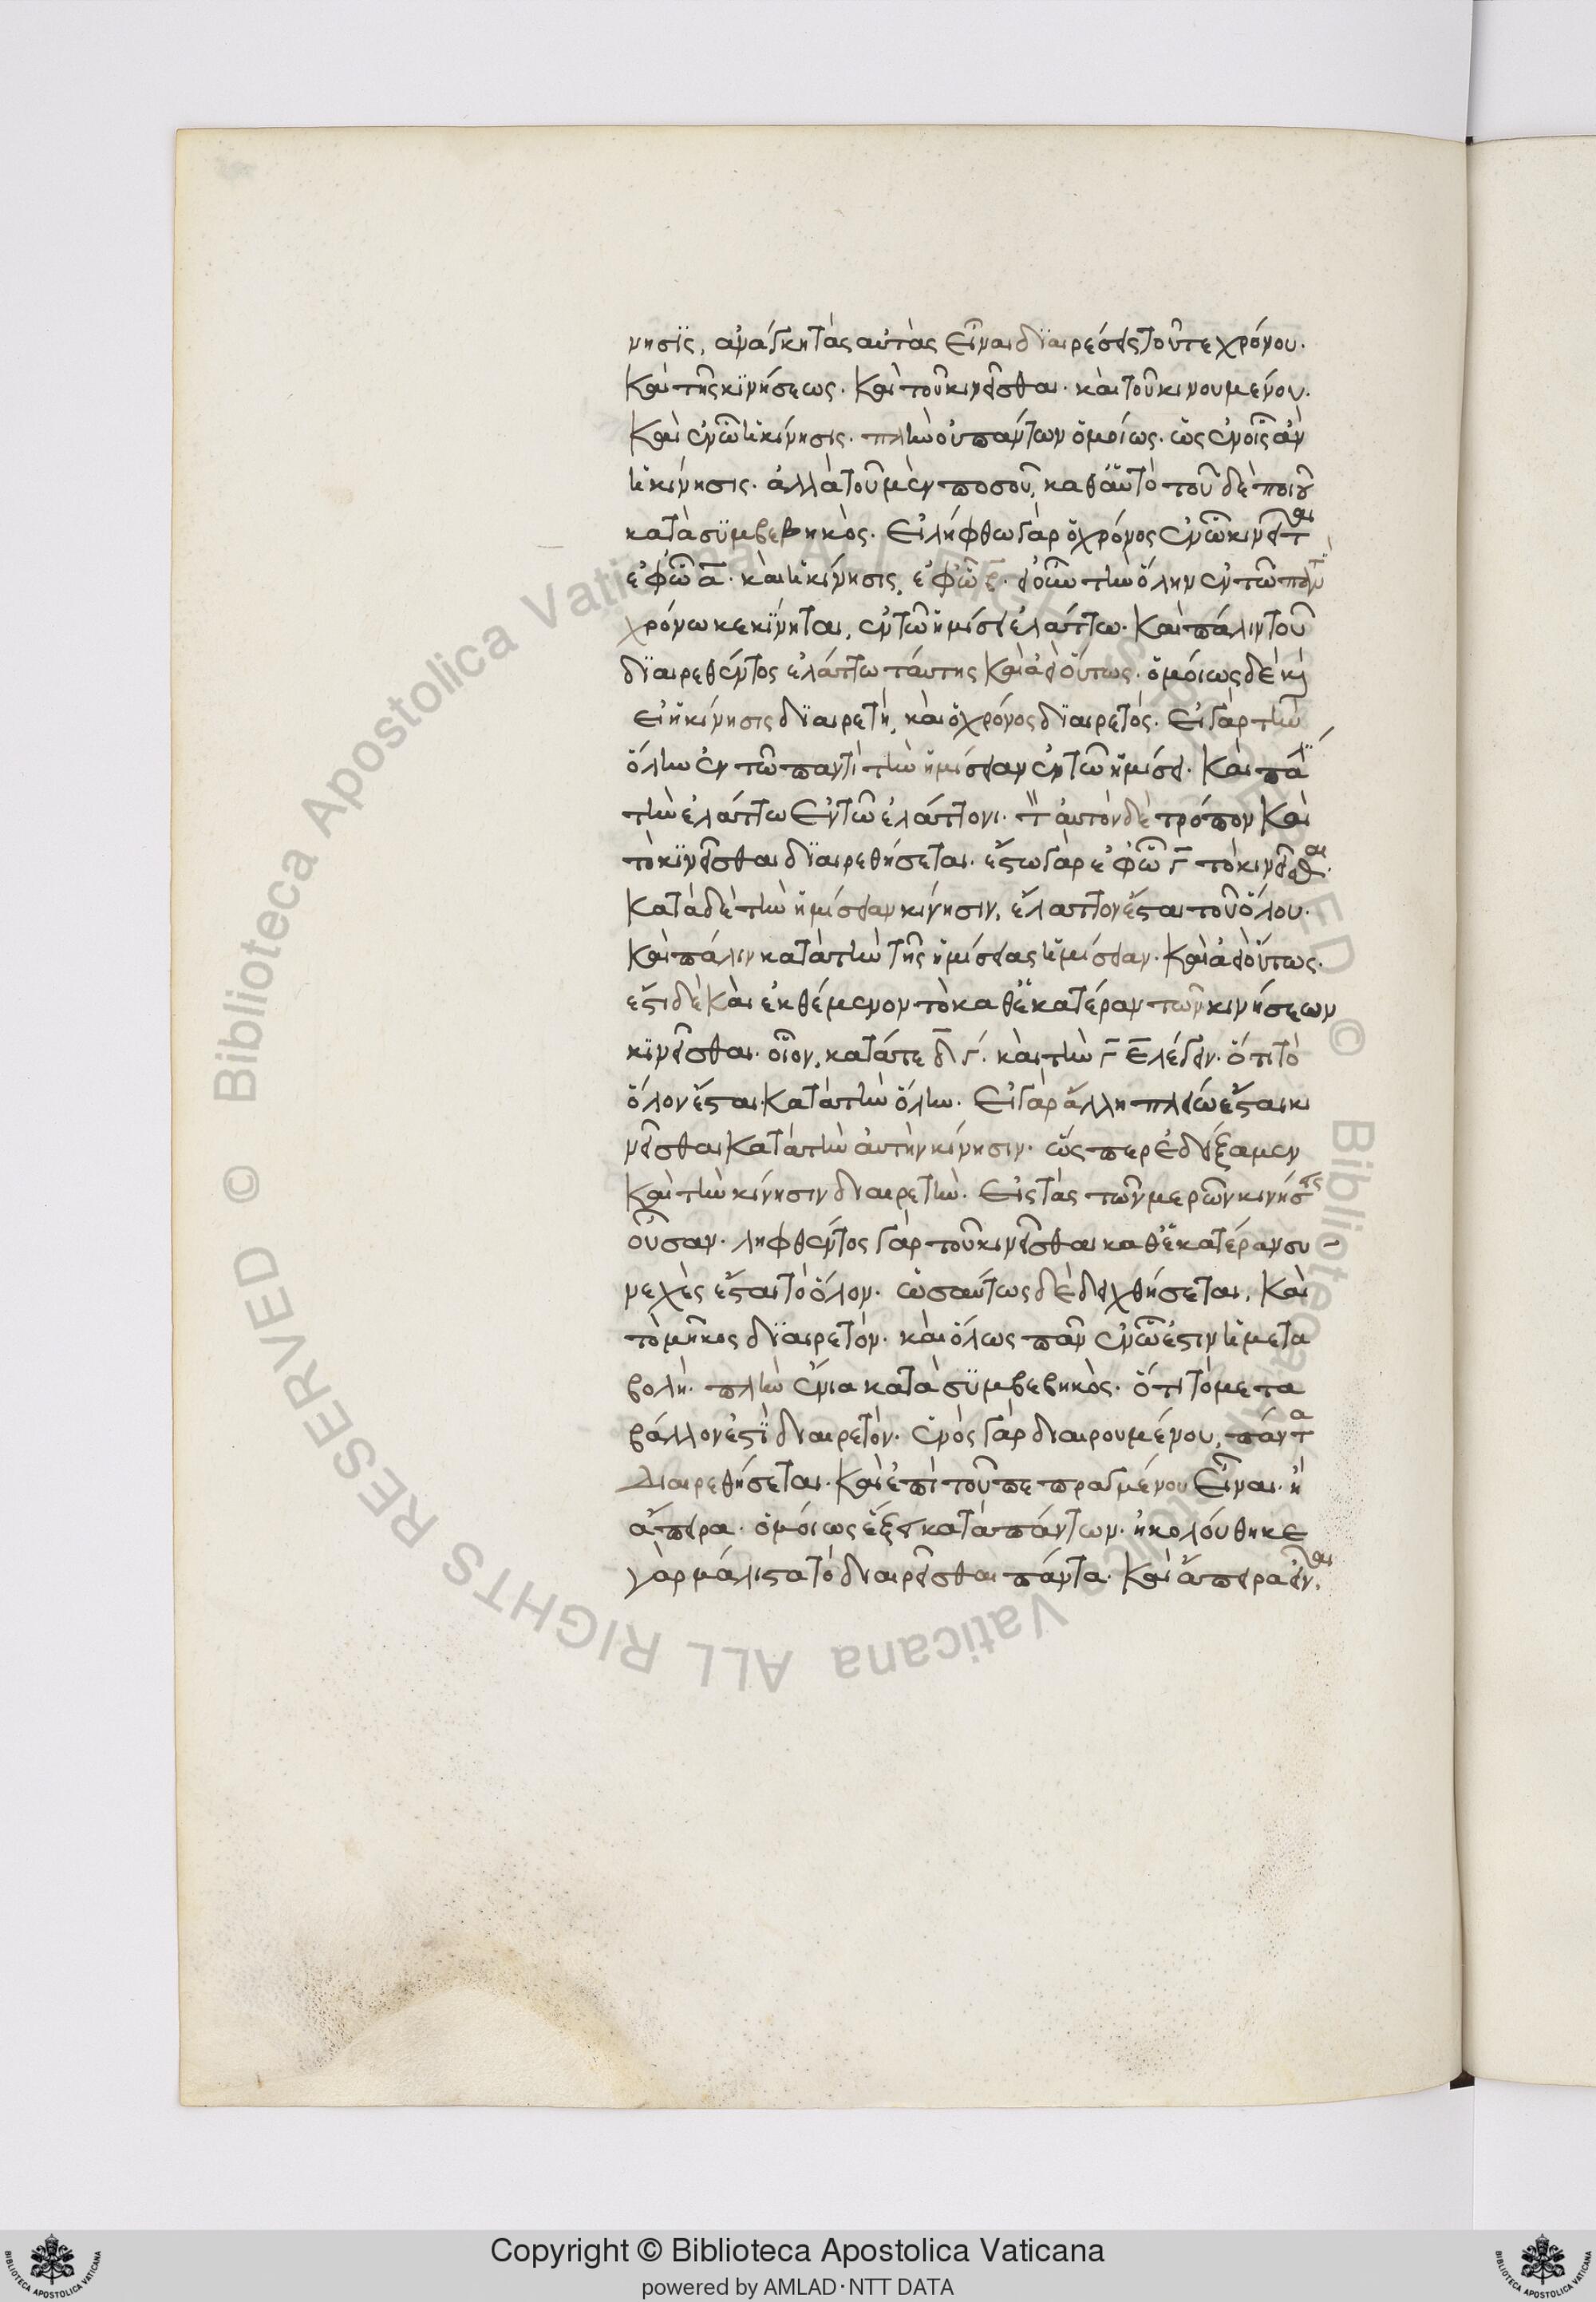 νησις, ἀνάγκη τὰς αὐτὰς εἶναι διαιρέσεις τοῦ τε χρόνου.
καὶ τῆς κινήσεως. καὶ τοῦ κινεῖσθαι. καὶ τοῦ κινουμένου.
καὶ ἐν ᾧ ἡ κίνησις. πλὴν οὐ πάντων ὁμοίως. ὡς ἐν οἷς ἂν
ἡ κίνησις. ἀλλὰ τοῦ μὲν ποσοῦ, καθ' αὑτὸ τοῦ δὲ ποιοῦ
κατὰ συμβεβηκός. Εἰλήφθω γὰρ ὁ χρόνος ἐν ᾧ κινεῖται
ἐφ' ᾧ α. καὶ ἡ κίνησις, ἐφ' ᾧ β. εἰ οὖν τὴν ὅλην ἐν τῷ παντὶ
χρόνω κεκίνηται, ἐν τῷ ἡμίσει ἐλάττω. καὶ πάλιν τοῦ
διαιρεθέντος ἐλάττω ταύτης καὶ ἀεὶ οὕτως. ὁμοίως δὲ κὶ
εἰ ἡ κίνησις διαιρετὴ, καὶ ὁ χρόνος διαιρετός. Εἰ γὰρ τὴν
ὅλην ἐν τῷ παντὶ τὴν ἡμίσειαν ἐν τῷ ἡμίσει. καὶ πάλιν
τὴν ἐλάττω Ἐν τῷ ἐλάττονι. τ αὐτὸν δὲ τρόπον καὶ
τὸ κινεῖσθαι διαιρεθήσεται. ἔστω γὰρ ἐφ' ᾧ γ τὸ κινεῖσθαι.
κατὰ δὲ τὴν ἡμίσειαν κίνησιν, ἔλαττον ἔσται τοῦ ὅλου.
καὶ πάλιν κατὰ τὴν τῆς ἡμισείας ἡμίσειαν. καὶ ἀεὶ οὕτως.
ἔστι δὲ καὶ ἐκθέμενον τὸ καθ' ἑκατέραν τῶν κινήσεων
κινεῖσθαι. οἷον, κατά τε δ γ. καὶ τὴν γ ε λέγειν. ὅτι τὸ
ὅλον ἔσται. κατὰ τὴν ὅλην. Εἰ γὰρ ἄλλη πλείω ἔσται κι
νεῖσθαι κατὰ τὴν αὐτὴν κίνησιν. ὥσπερ ἐδείξαμεν
καὶ τὴν κίνησιν διαιρετὴν. Εἰς τὰς τῶν μερῶν κινήσεις
οὖσαν. ληφθέντος γὰρ τοῦ κινεῖσθαι καθ' ἑκατέραν συ-
νεχὲς ἔσται τὸ ὅλον. ὡσαύτως δὲ δειχθήσεται, καὶ
τὸ μῆκος διαιρετὸν. καὶ ὅλως πᾶν ἐν ᾧ ἐστιν ἡ μετα
βολή. πλὴν ἔνια κατὰ συμβεβηκὸς. ὅτι τὸ μετα
βάλλον ἐστὶ διαιρετόν. ἑνὸς γὰρ διαιρουμένου, πάντα
Διαιρεθήσεται. καὶ ἐπὶ τοῦ πεπραγμένου Εἶναι. ἢ
ἄπειρα. ὁμοίως ἕξει κατὰ πάντων. ἠκολούθηκε
γὰρ μάλιστα τὸ διαιρεῖσθαι πάντα. καὶ ἄπειρα εἶναι,
Copyright © Biblioteca Apostolica Vaticana
powered by AMLAD·NTT DATA
© Biblioteca Apostolica Vaticana ALL RIGHTS RESERVED
© Biblioteca Apostolica Vaticana ALL RIGHTS RESERVED